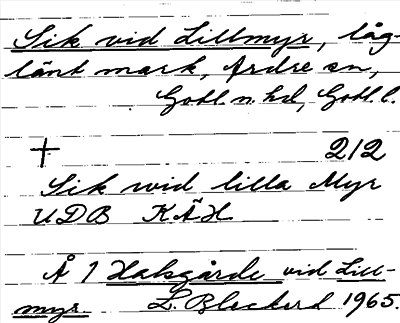 Sik vid Lillmyr, låg-
länt mark, Ardre sn,
Gotl. n. hd, Gotl. l.
† 212
Sik wid lilla Myr
UDB KÄH
Å 1 Halsgårde vid Lill-
myr. L. Bleckert 1965.